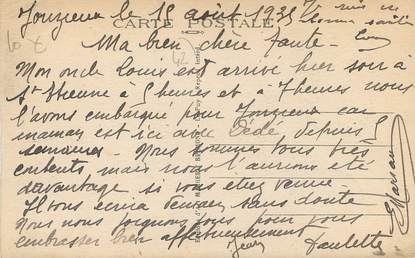 Jonzieux le 18 août 1935
Je suis en
bonne santé
CARTE POSTALE
Ma bien chère tante
Mon oncle Louis est arrivé hier soir à
St Etienne à 5 heures et à 7 heures nous
l'avons embarqué pour Jonzieux car
maman est ici avec Dédé, depuis 5
semaines. Nous sommes tous très
contents mais nous l'aurions été
davantage si vous étiez venue.
Il vous écrira demain sans doute
Nous nous joignons tous pour vous
embrasser bien affectueusement
Jean
Paulette